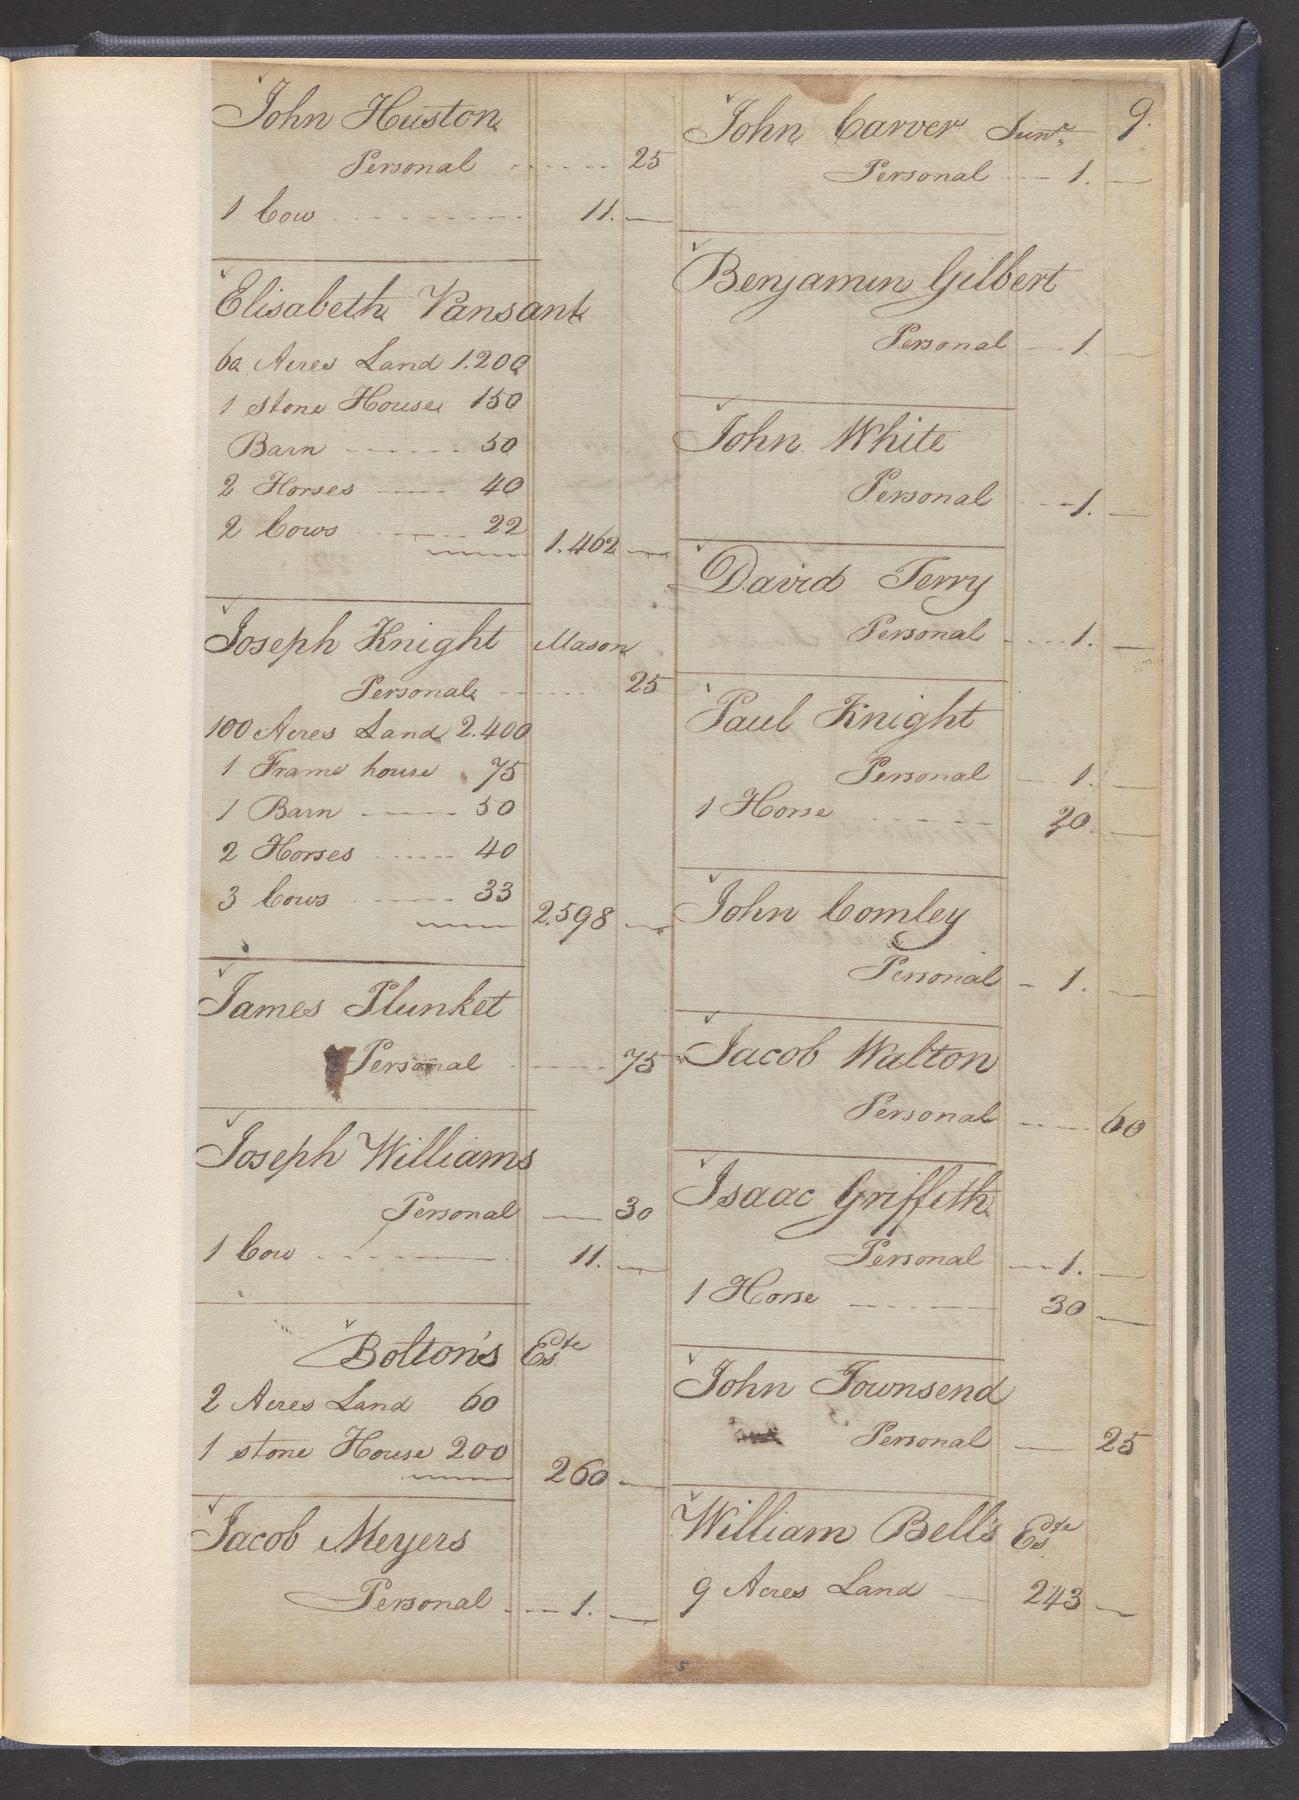 John Huston
Personal 25
1 Cow 11.
Elisabeth Vansant
60 Acres Land 1.200
1 stone House 150
Barn 50
2 Horses 40
2 Cows 22
1.462
Joseph Knight Mason
Personal 25
100 Acres Land 2.400
1 Frame house 75
1 Barn 50
2 Horses 40
3 Cows 33
2.598
James Plunket
Personal 75
Joseph Williams
Personal 30
1 Cow 11.
Bolton's Este
2 Acres Land 60
1 stone House 200
260
Jacob Meyers
Personal 1.
9.
John Carver Junr.
Personal 1.
Benjamin Gilbert
Personal 1.
John White
Personal 1.
David Terry
Personal 1.
Paul Knight
Personal 1.
1 Horse 20.
John Comley
Personal 1.
Jacob Walton
Personal 60
Isaac Griffith
Personal 1.
1 Horse 30
John Townsend
Personal 25
William Bell's Este
9 Acres Land 243